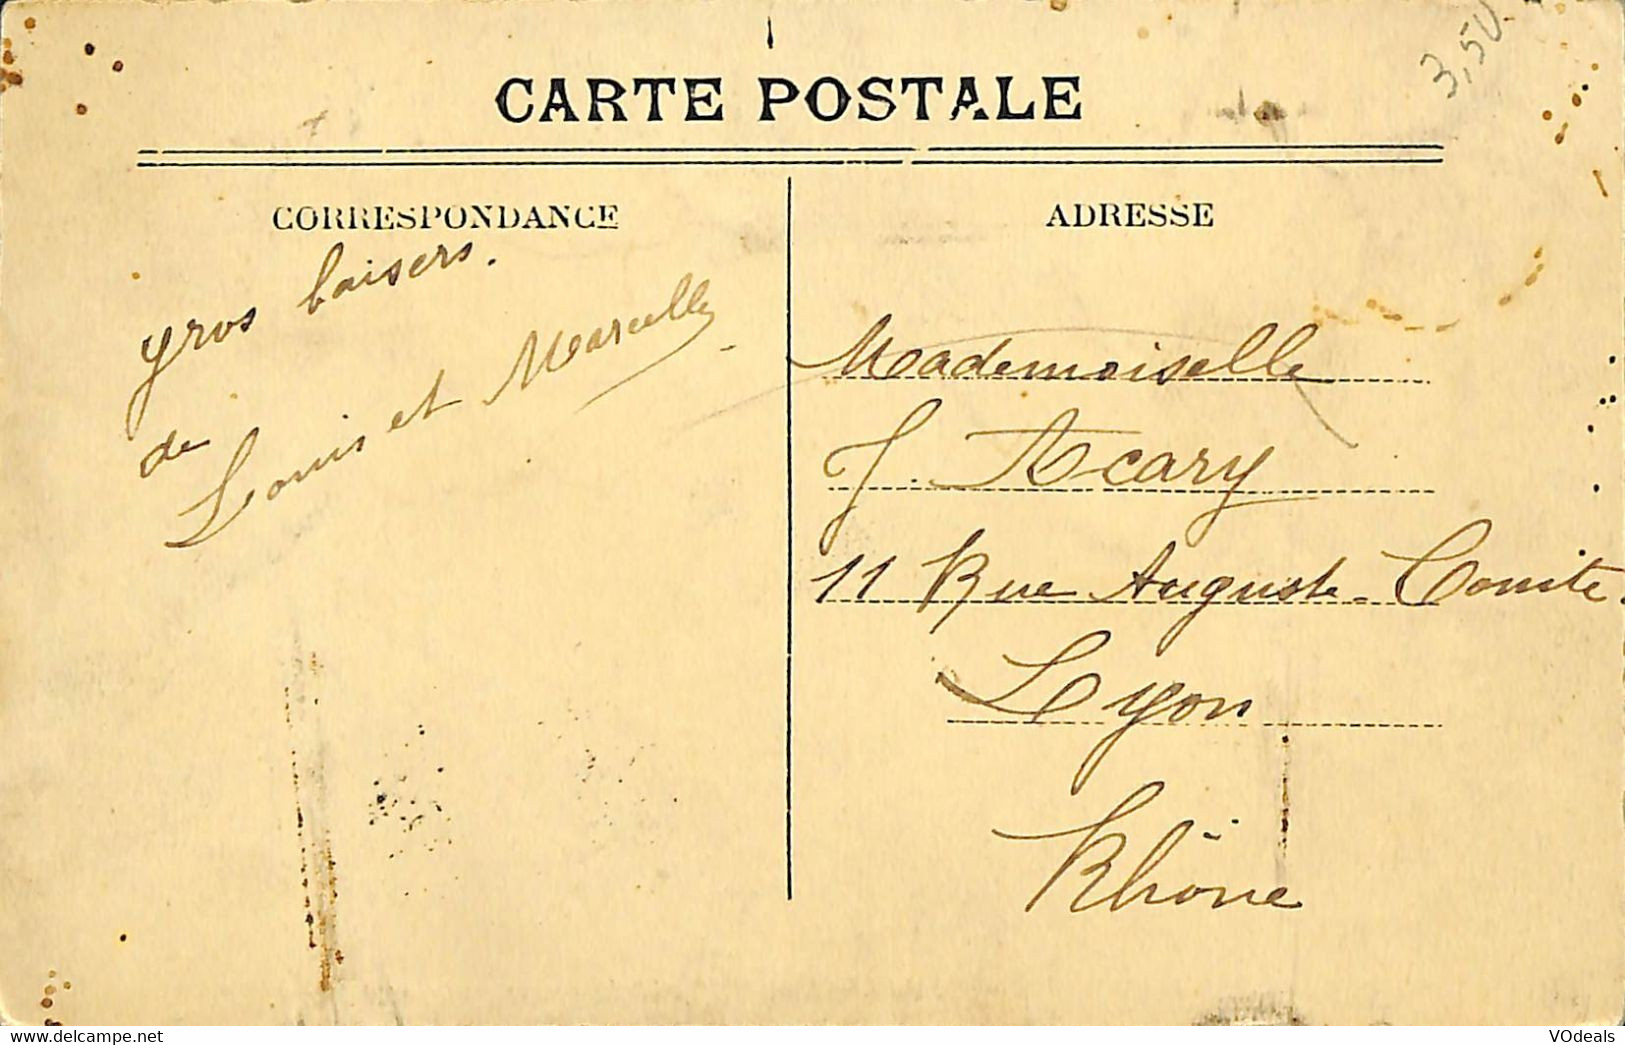 3,50
CARTE POSTALE
CORRESPONDANCE
gros baisers.
de
Louis et Marcelle
ADRESSE
Mademoiselle
J. Acary
11 Rue Auguste-Comte.
Lyon
Rhône
https://www.delcampe.net
VOdeals